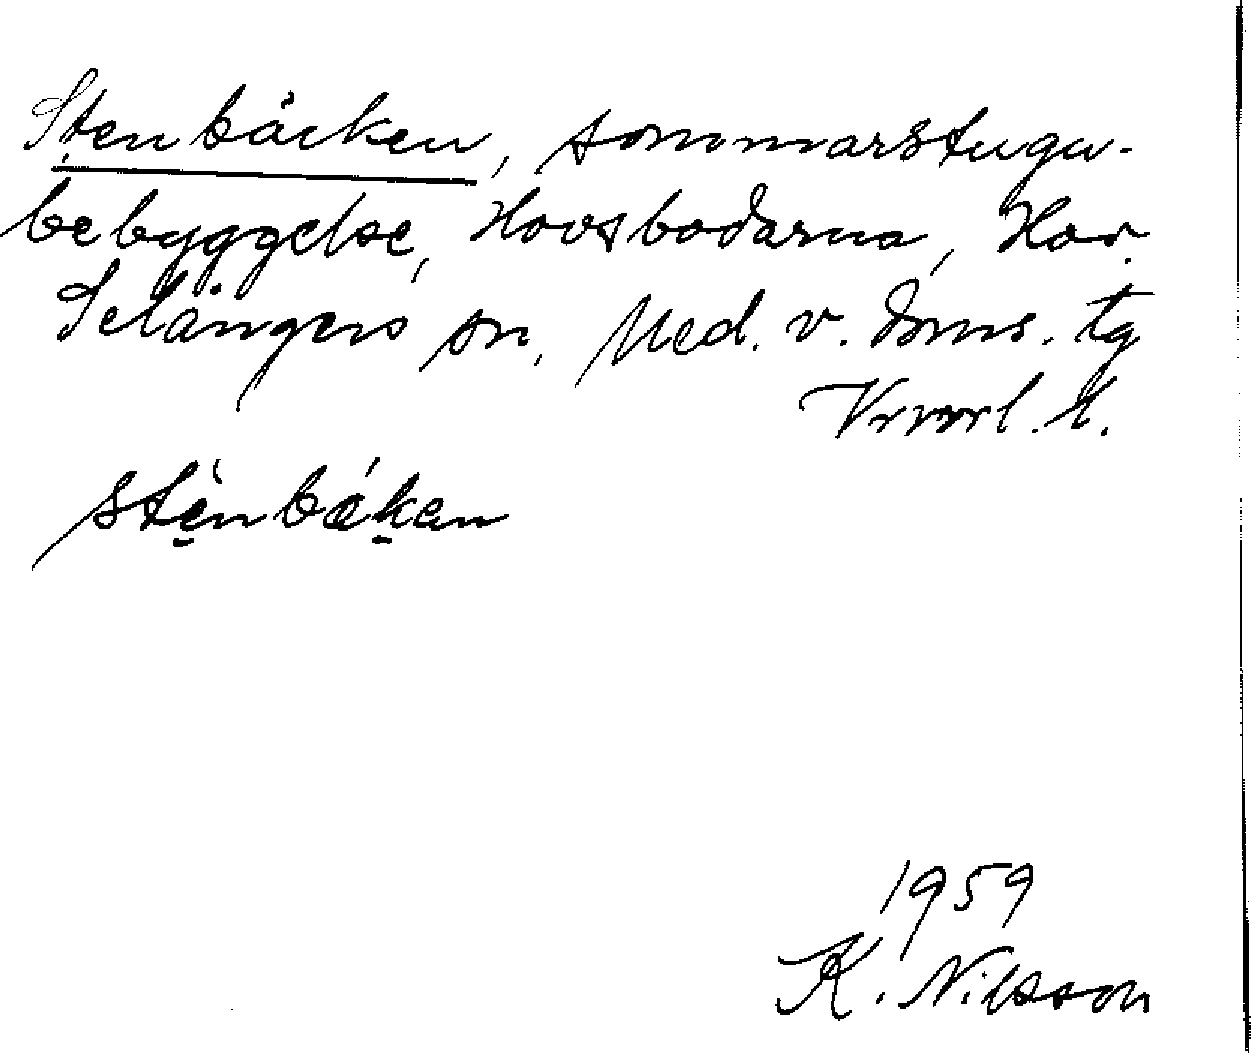 Stenbäcken, sommarstugu-
bebyggelse, Hovsbodarna, Hov.
Selångers sn, Med. v. doms. tg
Vnorrl. l.
stènbákan
1959
K. Nilsson